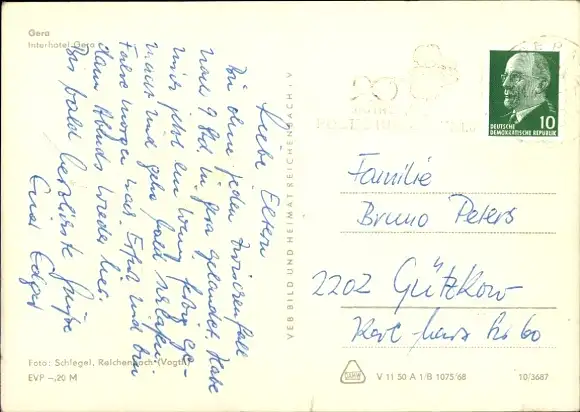 Gera
Interhotel Gera
Liebe Eltern
Bin ohne jeden Zwischenfall
nach 9 Std in Gera gelandet. Habe
mich jetzt ein wenig fertig ge-
macht und gehe bald schlafen.
Fahre morgen nach Erfurt und bin
dann Abends wieder hier.
Bis bald herzlichste Grüße
Euer Edgar
Foto: Schlegel, Reichenbach (Vogtl)
EVP -,20 M
VEB BILD UND HEIMAT REICHENBACH i. V
DEUTSCHE
DEMOKRATISCHE REPUBLIK
10
Familie
Bruno Peters
2202 Gützkow
Karl-Marx Str 60
V 11 50 A 1/B 1075/68
10/3687